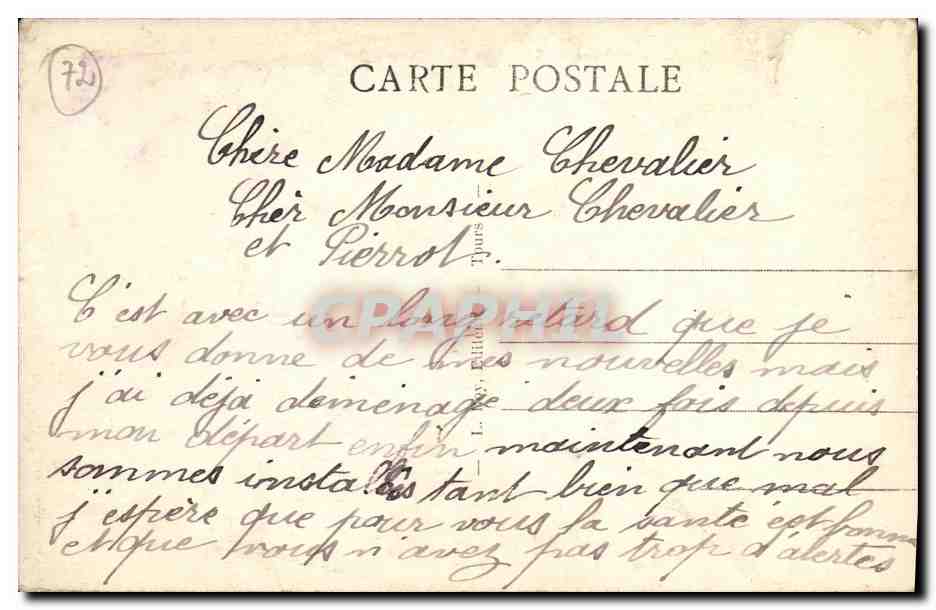 72
CARTE POSTALE
Chère Madame Chevalier
Chèr Monsieur Chevalier
et Pierrot.
C'est avec un long retard que je
vous donne de mes nouvelles mais
j'ai déjà déménagé deux fois depuis
mon départ enfin maintenant nous
sommes installés tant bien que mal
j'espère que pour vous la santé est bonne
et que vous n'avez pas trop d'alertes
Tours